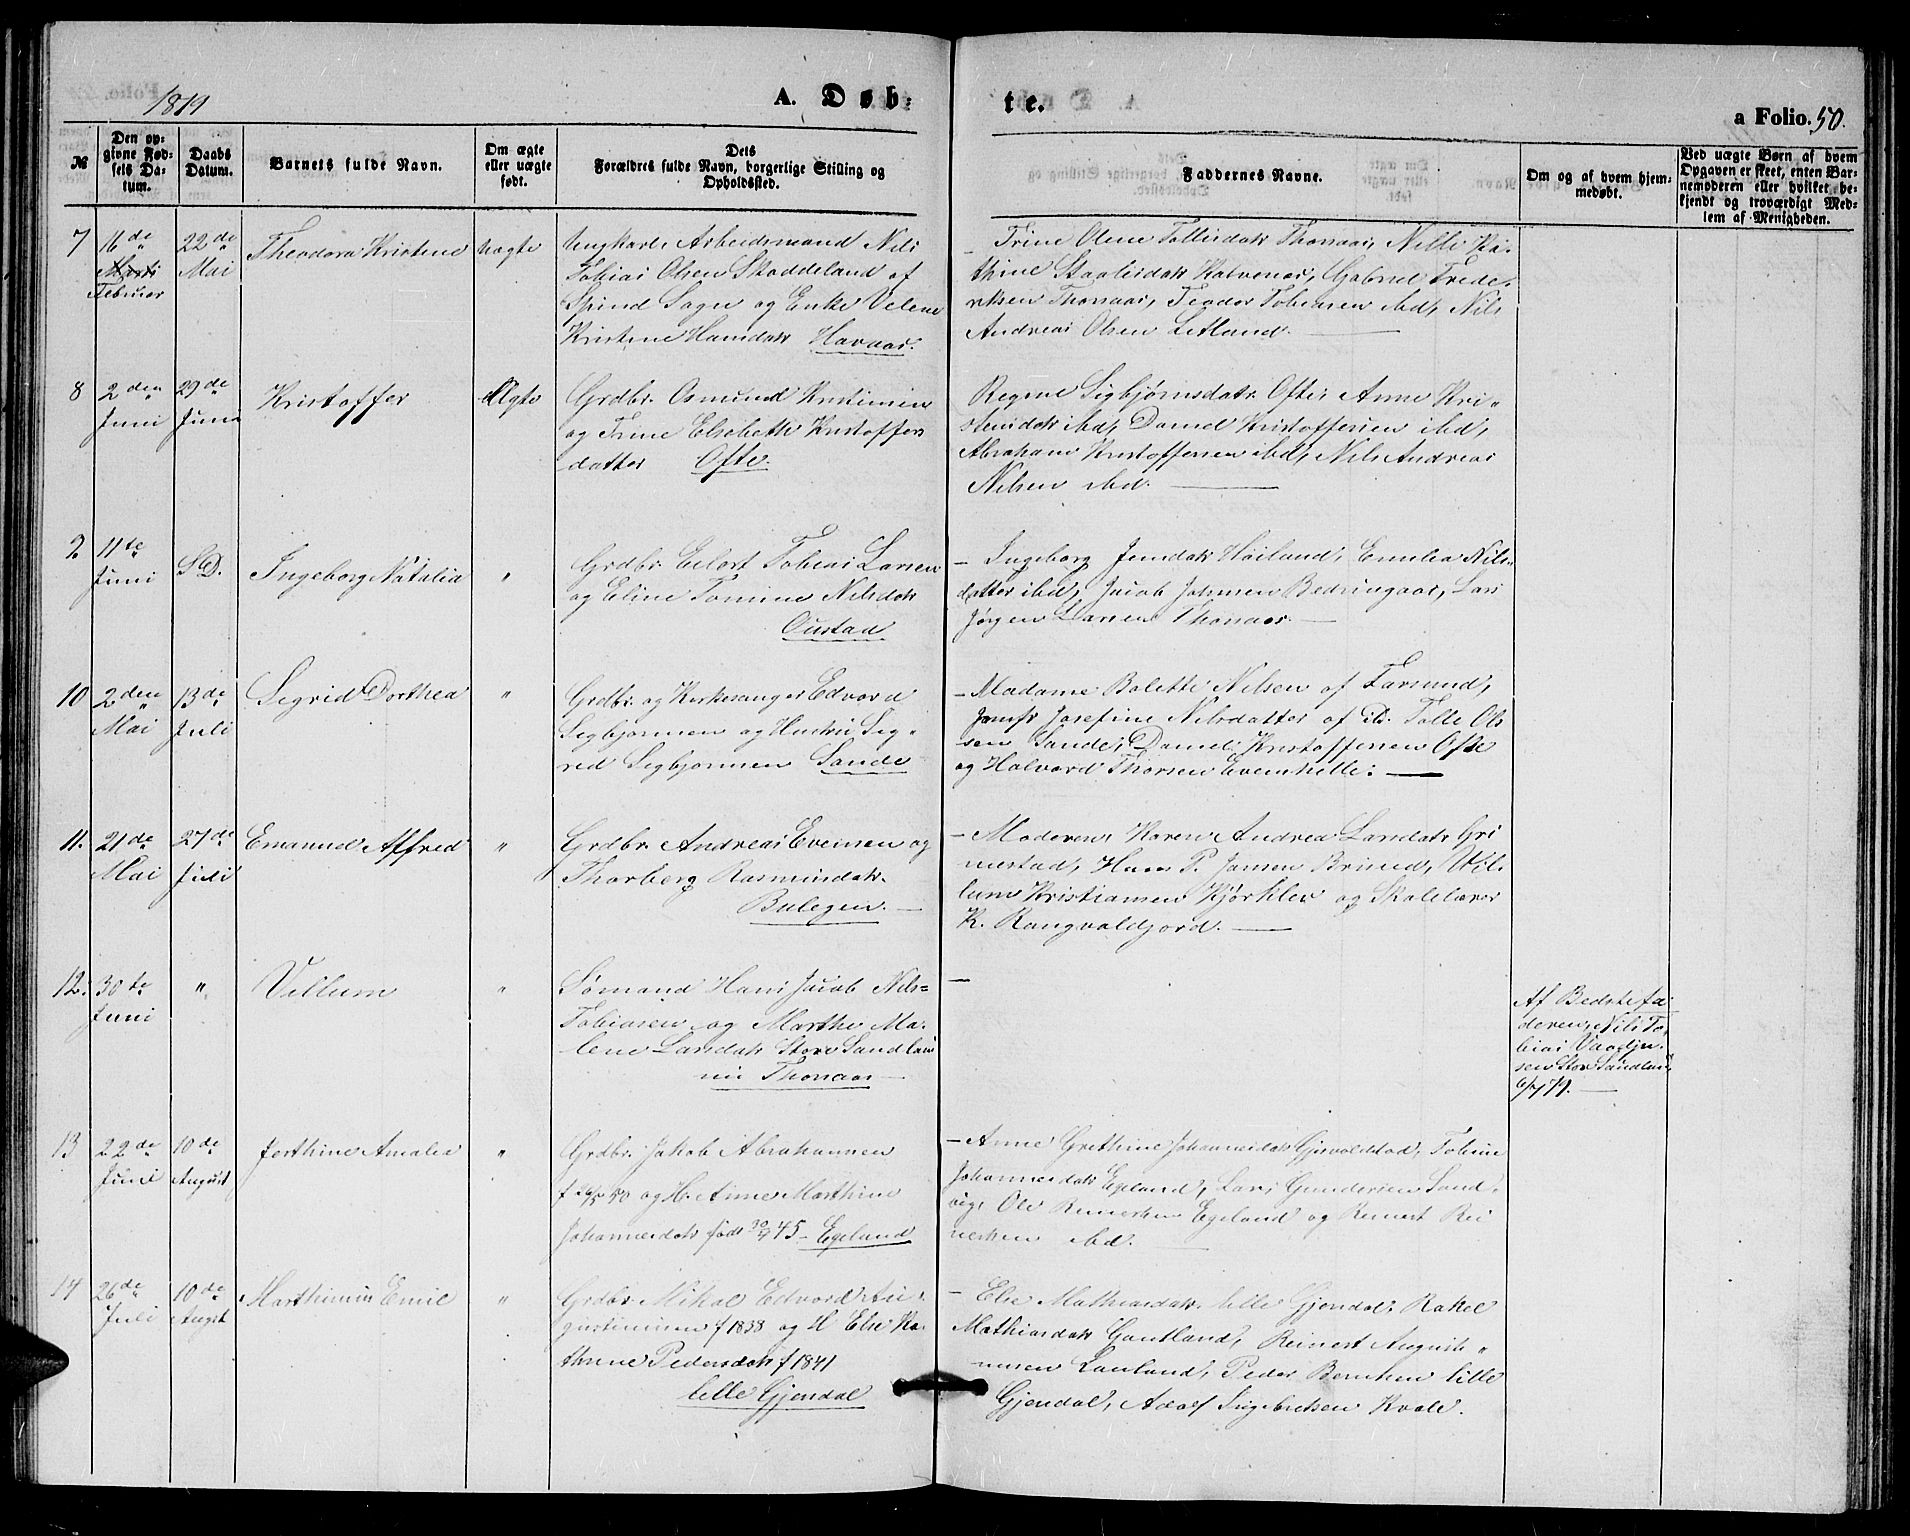 1879
A. Døb-
te.
a Folio. 50.
№
Den op-
givne Fød-
sels Da-
tum.
Daabs
Datum.
Barnets fulde Navn.
Om ægte
eller uægte
født.
Dets
Forældres fulde Navn, borgerlige Stilling og
Opholdssted.
Faddernes Navne.
Om og af hvem hjem-
medøbt.
Ved uægte Børn af hvem
Opgaven er skeet, enten Bar-
nemoderen eller hvilket be-
kjendt og troværdigt Med-
lem af Menigheden.
7
16de
Marts
Februar
22de
Mai
Theodora Kristene
Uægte
Ungkarl Arbeidsmand Nils
Tobias Olsen Skoddeland af
Spind Sogn og Enke Velene
Kristine Hansdatr Havaas.
– Trine Olene Tollisdatr Thonaas, Nille Ka-
thine Staalesdatr Kalvenes, Gabriel Frede-
riksen Thonaas, Teodor Tobiasen ibd, Nils
Andreas Olsen Litland.
8
2den
Juni
29de
Juni
Kristoffer
Ægte
Grdbr. Osmund Kristensen
og Trine Elsabeth Kristoffers
datter Ofte.
Regine Sigbjørnsdatr Ofte, Anne Kri-
stensdatr ibd, Daniel Kristoffersen ibd,
Abraham Kristoffersen ibd, Nils Andreas
Nilsen ibd.
2
11te
Juni
S.D.
Ingeborg Natalia
"
Grdbr. Eilert Tobias Larsen
og Eline Tomine Nilsdatr
Oustad
– Ingeborg Jensdatr Høiland, Emilia Nils-
datter ibd, Jacob Johnsen Bedringaas, Lars
Jørgen Larsen Thonaas.
10
2den
Mai
13de
Juli
Sigrid Dorthea
"
Grdbr. og Kirkesanger Edvard
Sigbjørnsen og Hustru Sig-
rid Sigbjørnsen Sande
– Madame Bolette Nilsen af Farsund,
Jomfr Josefine Nilsdatter af ib. Tolle Ol-
sen Sande, Daniel Kristoffersen Ofte
og Halvord Thorsen Evenshelle.
11.
21de
Mai
27de
Juli
Emanuel Alfred
"
Grdbr. Andreas Evensen og
Thorberg Rasmusdatr.
Bulegen.
– Moderen, Karen Andrea Larsdatr Gri
mestad, Hans P. Jansen Brised, Wil-
lum Kristiansen Kjørklev og Skolelærer
K. Rangvaldjord.
12.
30te
Juni
"
Villum
"
Sømand Hans Jacob Nils-
Tobiasen og Marthe Ma-
lene Larsdatr Store Sandland
nu Thonaas
–
Af Bedstefa-
deren, Nils To-
bias Vaadjn-
sen Store Sandland
6/7 79.
13
22de
Juni
10de
August
Jorthine Amalie
"
Grdbr. Jakob Abrahamsen
f 26/5 50 og H. Anne Marthine
Johannesdatr født 30/7 45 – Egeland
– Anne Grethine Johannesdatr Gjervoldstad, Tobine
Johannesdatr Egeland, Lars Gundersen Sand-
vig, Ole Reinertsen Egeland og Reinert Rei
nertsen ibd.
14
26de
Juli
10de
August
Marthinius Emil
"
Grdbr. Mikal Edvard Au-
gustinusen f 1838 og H Else Ka-
thrine Pedersdatr f 1841
lille Gjendal
– Else Mathiasdatr. lille Gjendal, Rakel
Mathiasdatr Gautland, Reinert Augusti-
nusen Lauland, Peder Berntsen lille
Gjendal, Adolf Ingebretsen Kvale.